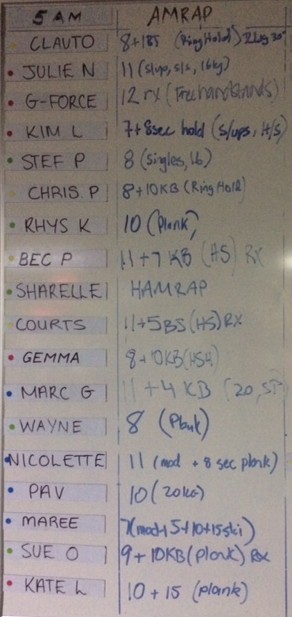 5 AM AMRAP
CLAUTO 8+185 (Ring Hold)
JULIE N 11 (s/ups, s/s, 16kg)
G-FORCE 12 rx (Freehandstands)
KIM L 7+8sec hold (s/ups, H/S)
STEF P 8 (singles, 16)
CHRIS P 8+10KB (Ring Hold)
RHYS K 10 (plank)
BEC P 11+7 KB (HS) RX
SHARELLE HAMRAP
COURTS 11+5BS (HS) RX
GEMMA 8+10KB (HSH)
MARC G 11+4 KB (20,
WAYNE 8 (Plank)
NICOLETTE 11 (mod + 8 sec plank)
PAV 10 (20kg)
MAREE 7(mod+5+10+15ski)
SUE O 9+10KB (plank) Rx
KATE L 10+15 (plank)